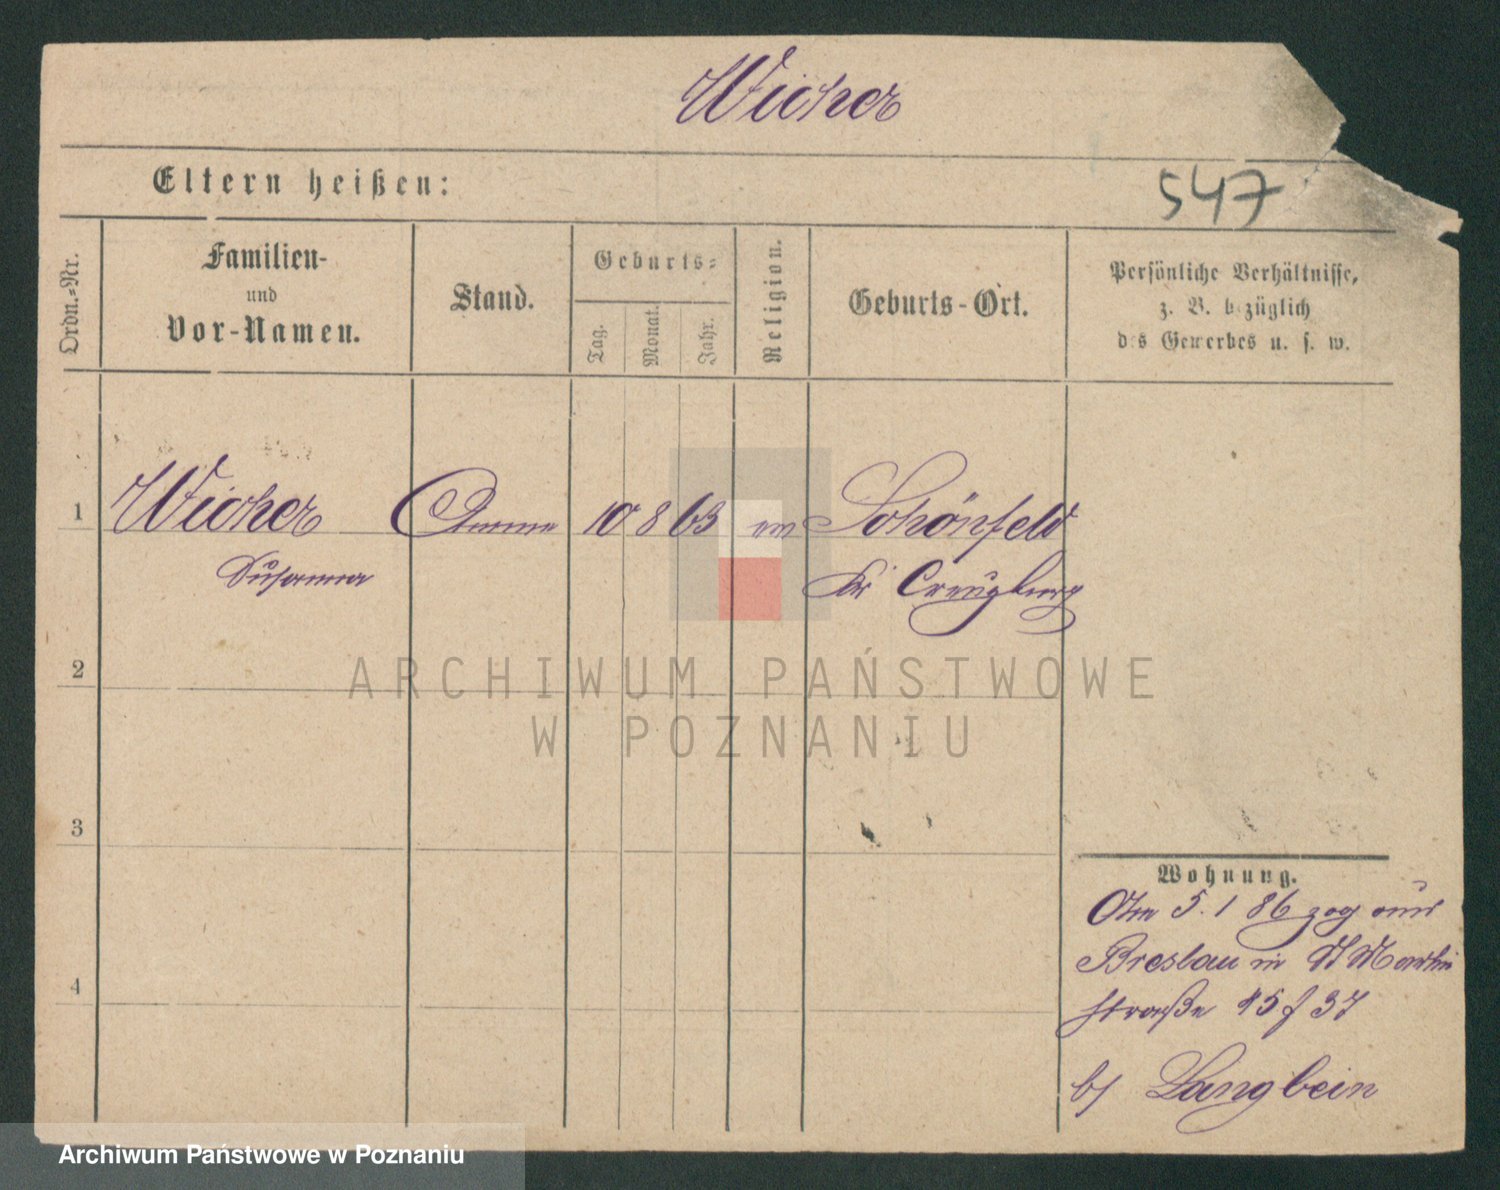 Wicher
Eltern heißen:
547
Ordn.-Nr.
Familien-
und
Vor-Namen.
Stand.
Geburts-
Tag.
Monat.
Jahr.
Religion.
Geburts-Ort.
Persönliche Verhältnisse,
z. B. bezüglich
des Gewerbes u. s. w.
1 Wicher Amme 10 8 63 ev Schönfeld
Susanna Kr Creuzburg
2
3
4
Wohnung.
Am 5. 1 86 zog aus
Breslau in St Martin
straße
b/ Langbein
ARCHIWUM PAŃSTWOWE
W POZNANIU
Archiwum Państwowe w Poznaniu